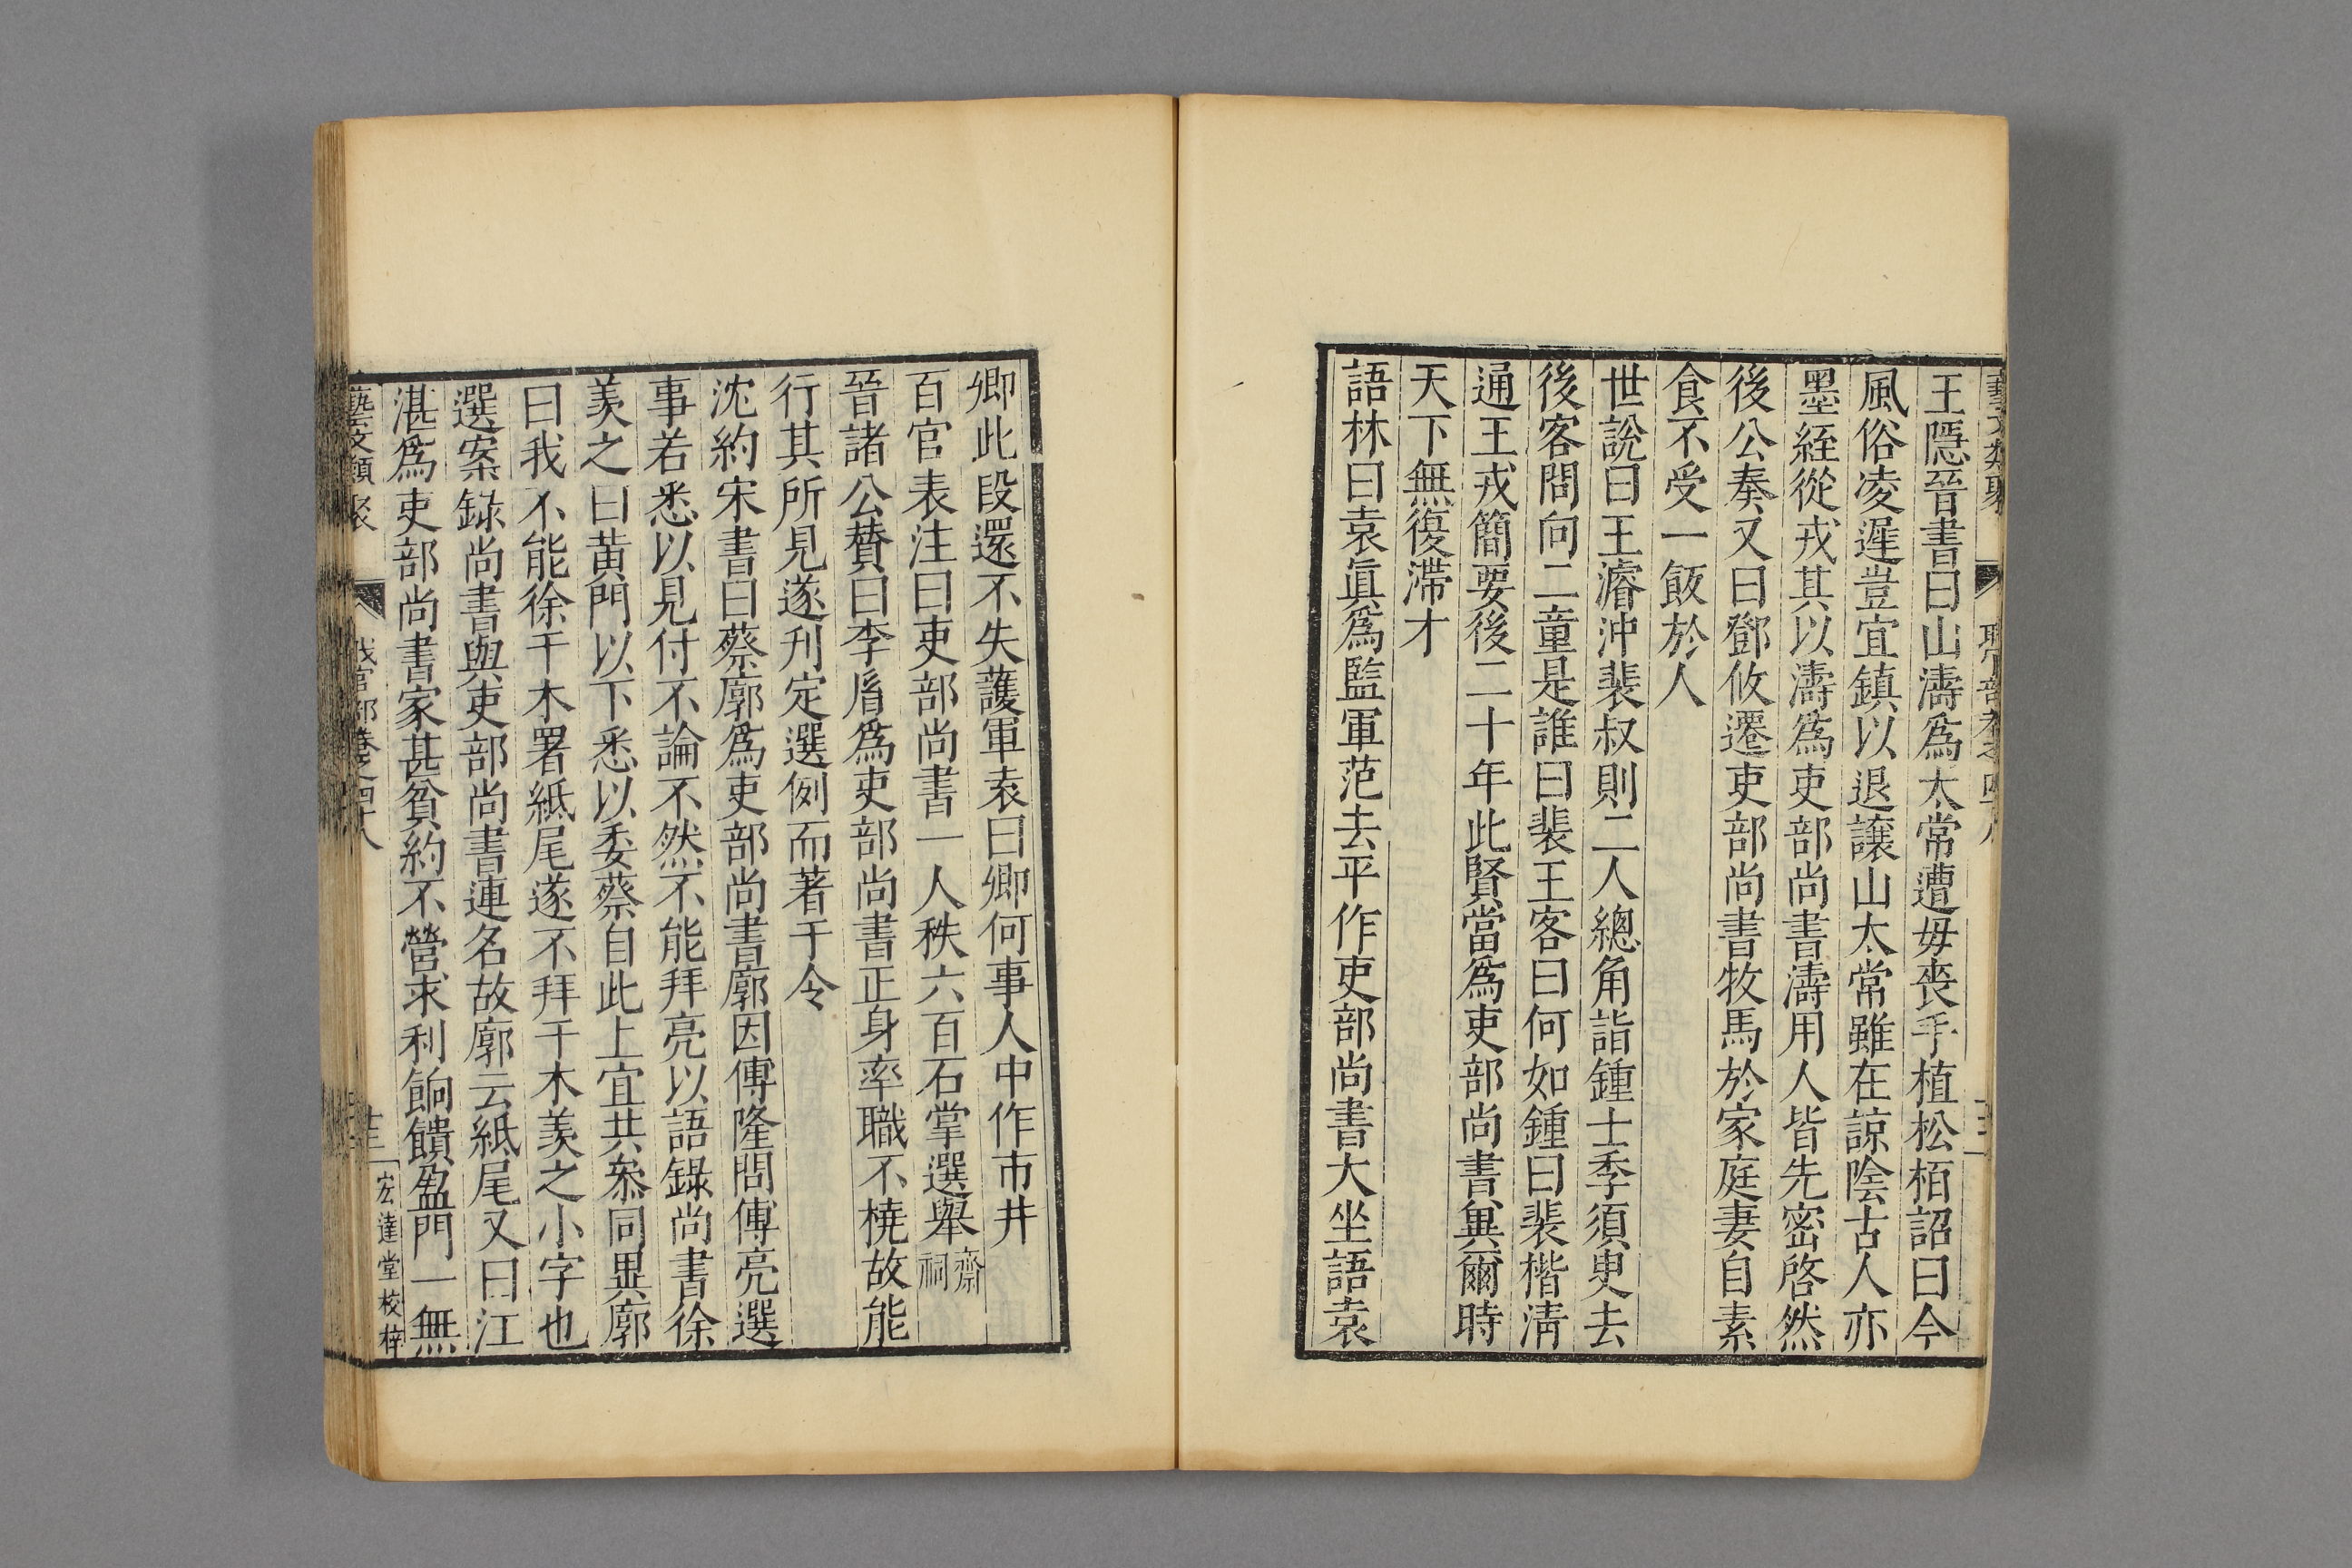 王隱晉書曰山濤爲太常遭毋喪手植松栢詔曰今
風俗凌遲豈宜鎮以退讓山太常雖在諒陰古人亦
墨絰從戎其以濤爲吏部尚書濤用人皆先密啓然
後公奏又曰鄧攸遷吏部尚書牧馬於家庭妻自素
食不受一飯於人
世說曰王濬沖裴叔則二人總角詣鍾士季須臾去
後客問向二童是誰曰裴王客曰何如鍾曰裴楷淸
通王戎簡要後二十年此賢當爲吏部尚書兾爾時
天下無復滯才
語林曰袁眞爲監軍范去平作吏部尚書大坐語袁
卿此段還不失護軍袁曰卿何事人中作市井
百官表注曰吏部尚書一人秩六百石掌選舉齋祠
晉諸公贊曰李脣爲吏部尚書正身率職不橈故能
行其所見遂刋定選例而著于令
沈約宋書曰蔡廓爲吏部尚書廓因傅隆問傅亮選
事若悉以見付不論不然不能拜亮以語録尚書徐
羡之曰黄門以下悉以委蔡自此上宜共叅同異廓
曰我不能徐干木署紙尾遂不拜干木羡之小字也
選案録尚書與吏部尚書連名故廓云紙尾又曰江
湛爲吏部尚書家甚貧約不營求利餉饋盈門一無
藝文類聚
職官部卷之四十八
十三
宏達堂校梓